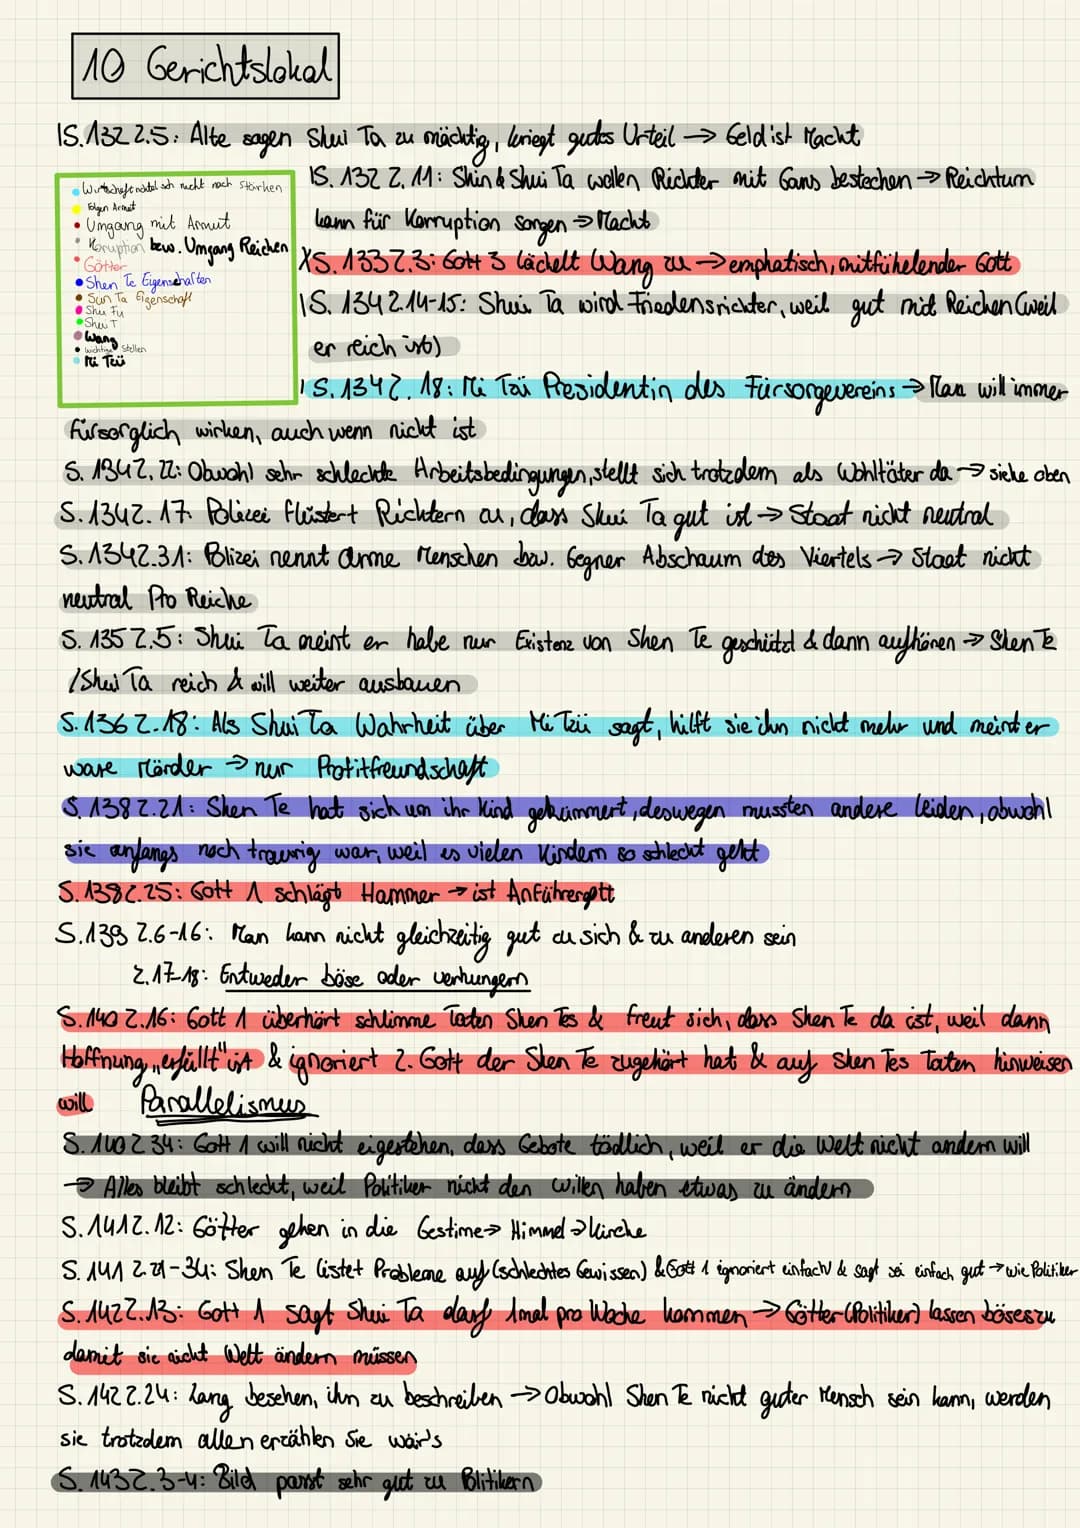 10 Gerichtslokal
S. 132 Z.5: Alte sagen Shui Ta zu mächtig, kriegt gutes Urteil → Geld ist Macht
• Wirtschaft nützt sich nicht nach Stärken
• Folgen Armut
• Umgang mit Armut
• Korruption bzw. Umgang Reichen
• Götter
• Shen Te Eigenschaften
• Sun Ta Eigenschaft
• Shu Fu
• Shui T
• Wang
• wichtige Stellen
• Mi Tzü
S. 132 Z. 11: Shin & Shui Ta wollen Richter mit Gans bestechen → Reichtum
kann für Korruption sorgen → Macht
S. 133 Z.3: Gott 3 lächelt Wang zu → emphatisch, mitfühelender Gott
S. 134 Z.14-15: Shui Ta wird Friedensrichter, weil gut mit Reichen (weil
er reich ist)
S. 134 Z. 18: Mi Tzü Presidentin des Fürsorgevereins → Man will immer
fürsorglich wirken, auch wenn nicht ist
S. 134 Z. 22: Obwohl sehr schlechte Arbeitsbedingungen, stellt sich trotzdem als Wohltäter da → siehe oben
S. 134 Z. 17: Polizei flüstert Richtern zu, dass Shui Ta gut ist → Staat nicht neutral
S. 134 Z.31: Polizei nennt arme Menschen bzw. Gegner Abschaum des Viertels → Staat nicht
neutral Pro Reiche
S. 135 Z.5: Shui Ta meint er habe nur Existenz von Shen Te geschützt & dann aufhören → Shen Te
/Shui Ta reich & will weiter ausbauen
S. 136 Z.18: Als Shui Ta Wahrheit über Mi Tzü sagt, hilft sie ihn nicht mehr und meint er
wäre Mörder → nur Profitfreundschaft
S. 138 Z.21: Shen Te hat sich um ihr Kind gekümmert, deswegen mussten andere leiden, obwohl
sie anfangs noch traurig war, weil es vielen Kindern so schlecht geht
S. 138 Z.25: Gott 1 schlägt Hammer → ist Anführergott
S. 139 Z.6-16: Man kann nicht gleichzeitig gut zu sich & zu anderen sein
Z.17-18: Entweder böse oder verhungern
S. 140 Z.16: Gott 1 überhört schlimme Taten Shen Tes & freut sich, dass Shen Te da ist, weil dann
Hoffnung „erfüllt" ist & ignoriert 2. Gott der Shen Te zugehört hat & auf Shen Tes Taten hinweisen
will Parallelismus
S. 140 Z 34: Gott 1 will nicht eigestehen, dass Gebote tödlich, weil er die Welt nicht ändern will
→ Alles bleibt schlecht, weil Politiker nicht den Willen haben etwas zu ändern
S. 141 Z. 12: Götter gehen in die Gestirne → Himmel → Kirche
S. 141 Z.21-34: Shen Te listet Probleme auf (schlechtes Gewissen) & Gott 1 ignoriert einfach & sagt sei einfach gut → wie Politiker
S. 142 Z.13: Gott 1 sagt Shui Ta darf 1mal pro Woche kommen → Götter (Politiker) lassen böses zu
damit sie nicht Welt ändern müssen
S. 142 Z.24: Lang besehen, ihn zu beschreiben → Obwohl Shen Te nicht guter Mensch sein kann, werden
sie trotzdem allen erzählen Sie wär's
S. 143 Z.3-4: Bild passt sehr gut zu Politikern